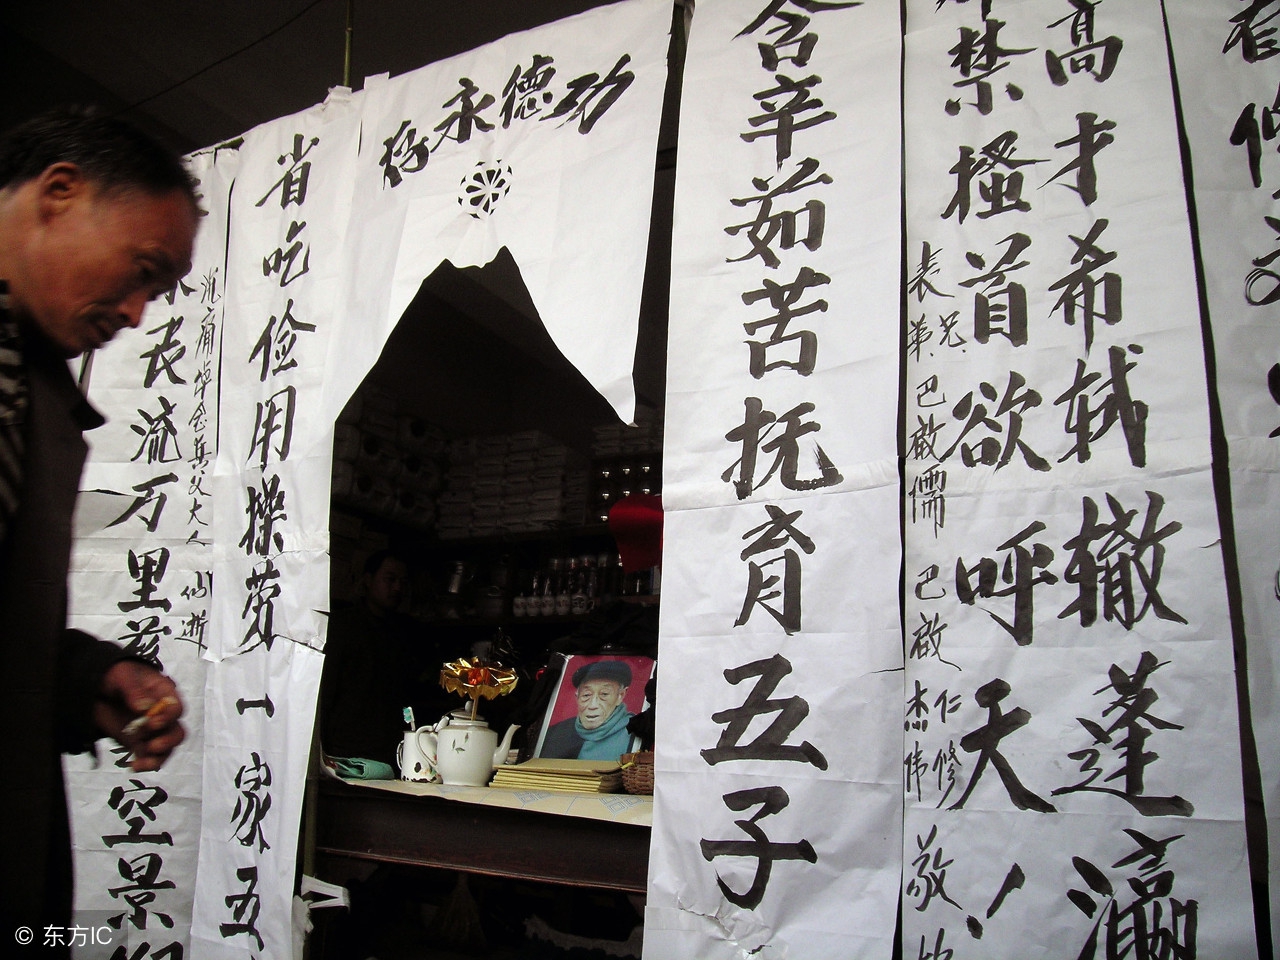 高才希轼辙蓬瀛
禁搔首欲呼天！
表兄弟 巴啟儒 巴啟仁杰 修伟 敬
含辛茹苦抚育五子
功德永存
省吃俭用操劳一家五
沉痛悼念岳父大人仙逝
丧流万里
空景
© 东方IC